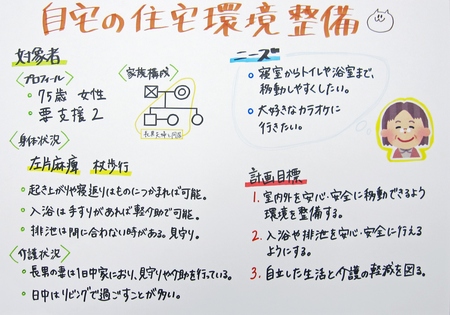 自宅の住宅環境整備
対象者
〈プロフィール〉
・75歳 女性
・要支援2
〈家族構成〉
長男夫婦と同居
〈身体状況〉
左片麻痺 杖歩行
・起き上がりや寝返りはものにつかまれば可能。
・入浴は手すりがあれば軽介助で可能。
・排泄は間に合わない時がある。見守り。
〈介護状況〉
・長男の妻は1日中家におり、見守りや介助を行っている。
・日中はリビングで過ごすことが多い。
ニーズ
○寝室からトイレや浴室まで、
移動しやすくしたい。
○大好きなカラオケに
行きたい。
計画目標
1. 室内外を安心・安全に移動できるよう
環境を整備する。
2. 入浴や排泄を安心・安全に行える
ようにする。
3. 自立した生活と介護の軽減を図る。